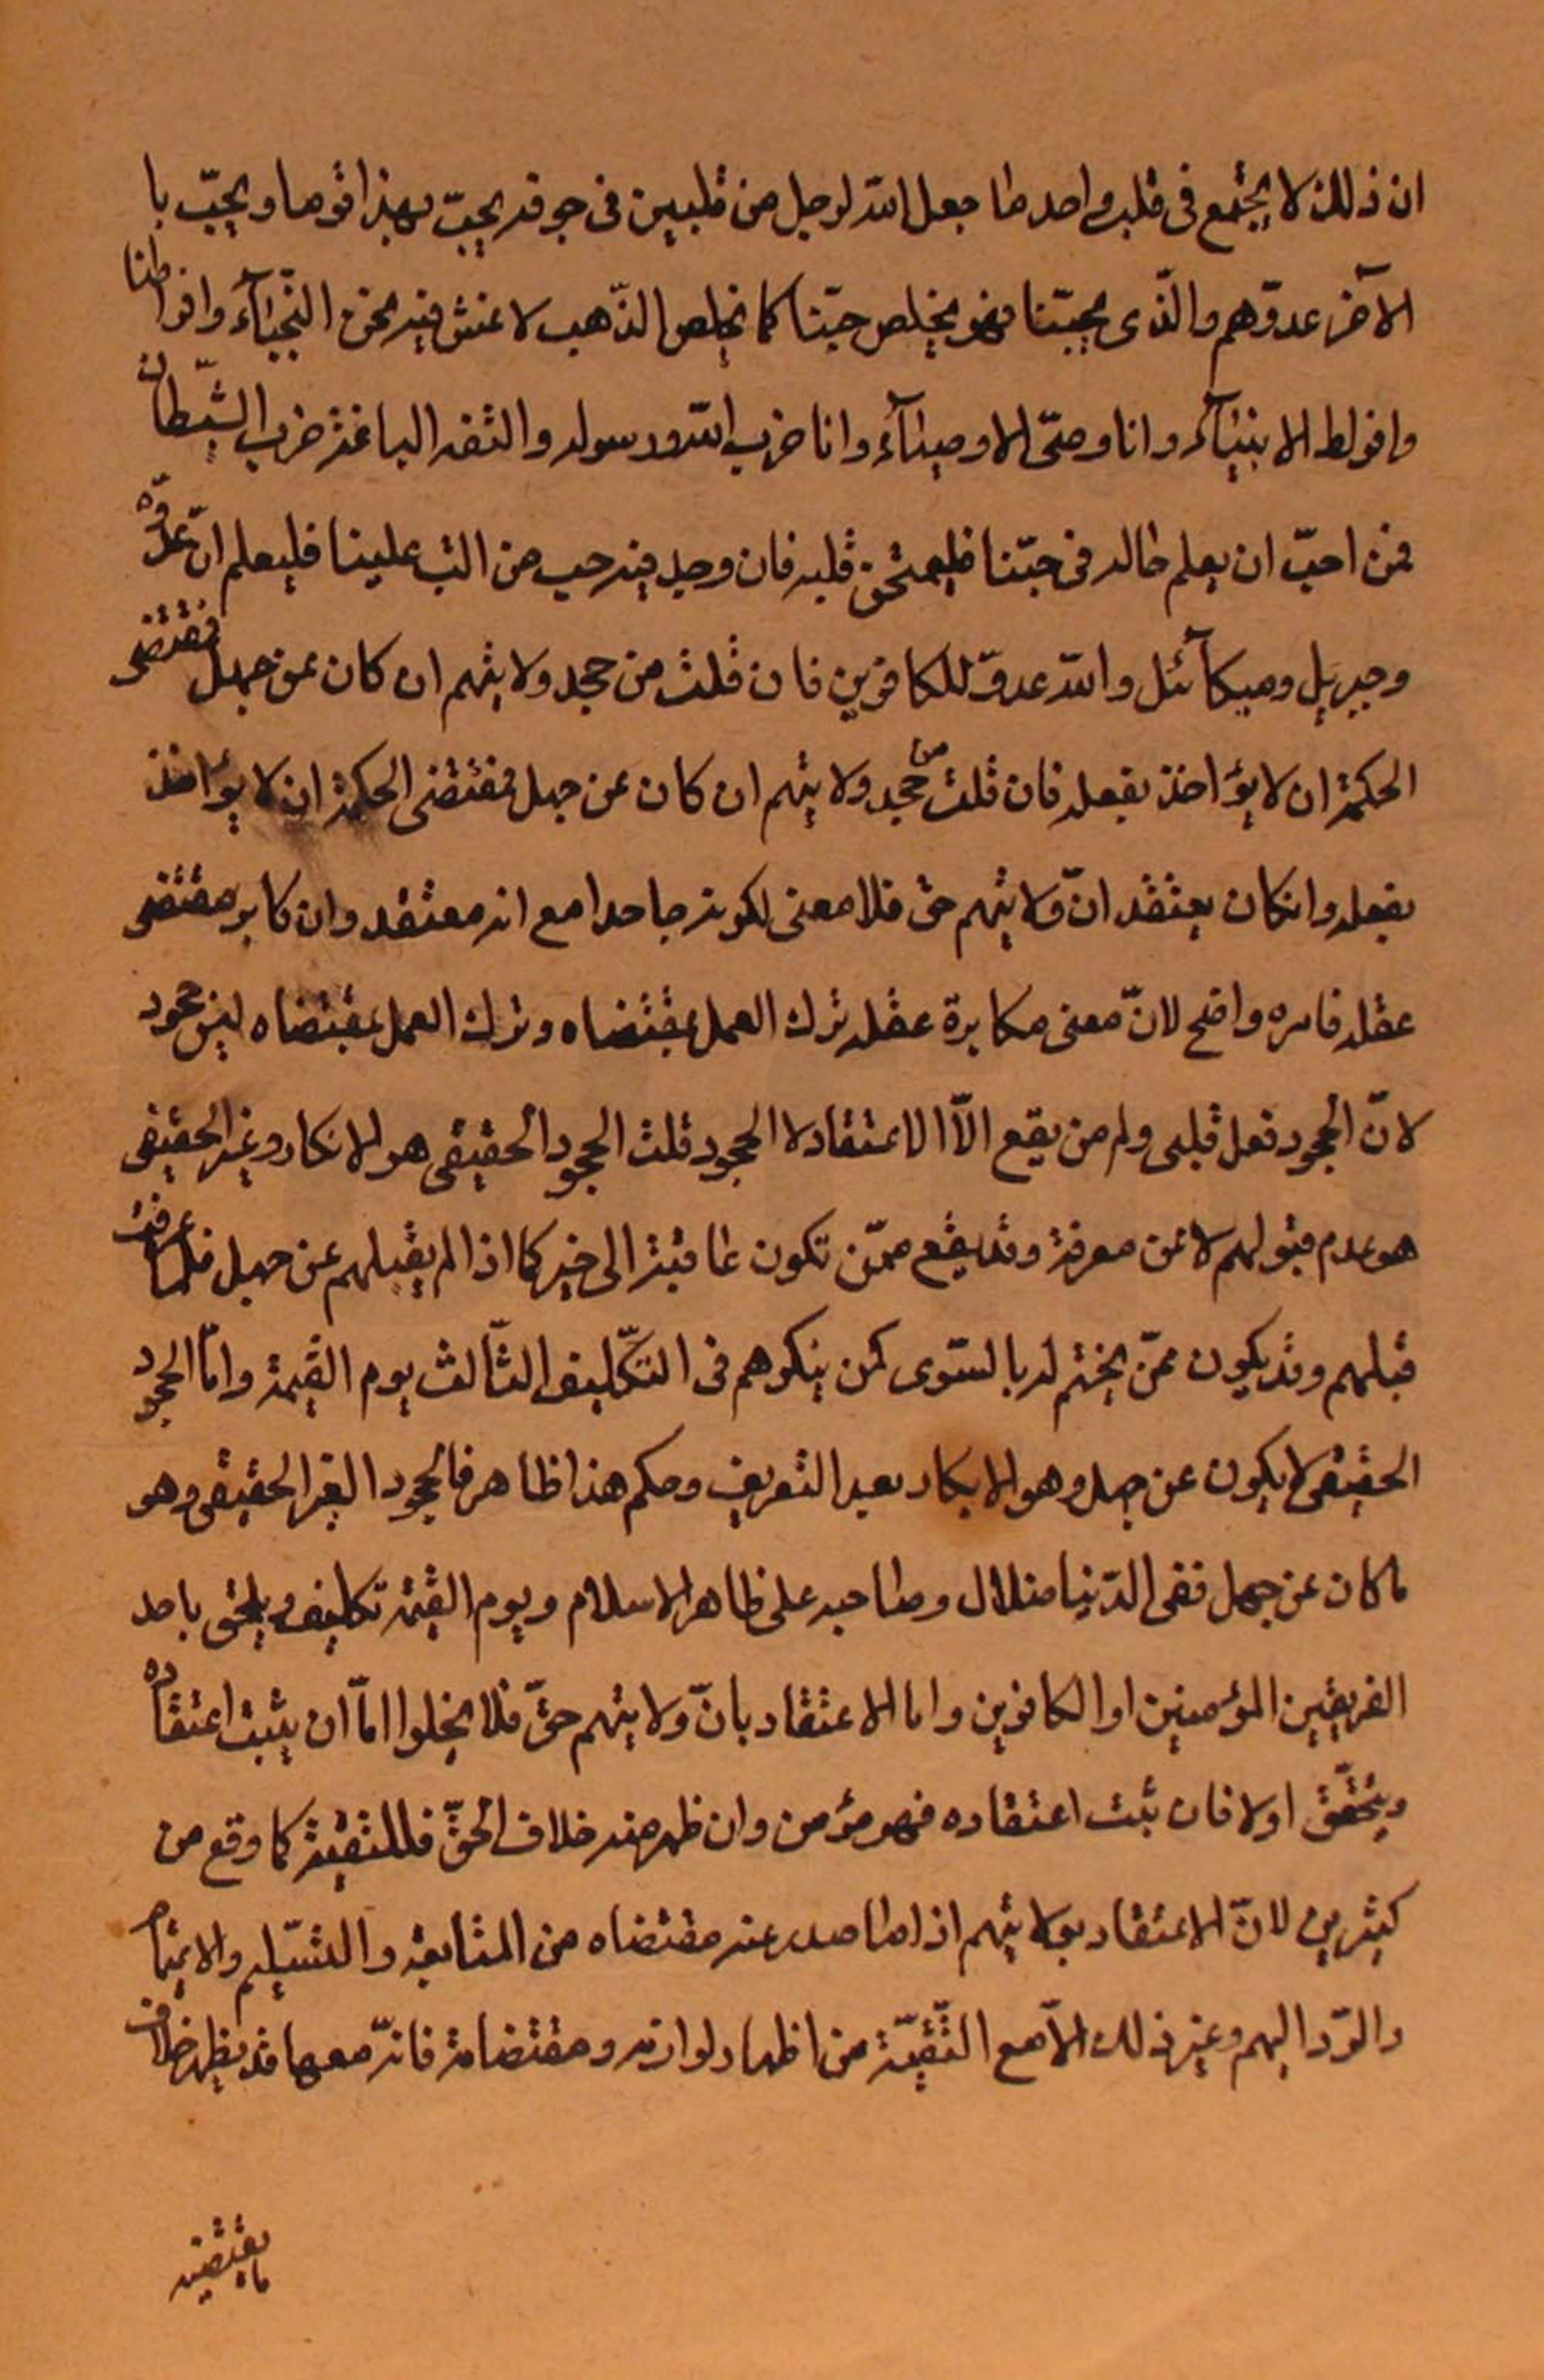 ان ذلك لا يجتمع فى قلب واحد ما جعل الله لرجل من قلبين فى جوفه يحبّ بهذا قوما ويحبّ با
الآخر عدوّهم والّذى يحبّنا فهو يخلص حبّنا كما يخلص الذّهب لا غش فيه نحن النّجباۤء وافراطنا
وافراط الانبياۤء وانا وصىّ الاوصياۤء وانا حزب الله ورسوله والفئة الباغية حزب الشّيطان
فمن احبّ ان يعلم حاله فى حبّنا فليمتحن قلبه فان وجد فيه حب من الب علينا فليعلم انّ عدوّه
وجبريل وميكاۤئل والله عدوّ للكافرين فان قلت من جحد ولايتهم ان كان عن جهل فمقتضى
الحكمة ان لا يؤاخذ بفعله فان قلت من جحد ولايتهم ان كان عن جهل فمقتضى الحكمة ان لا يؤاخذ
بفعله وانكان يعتقد انّ ولايتهم حق فلا معنى لكونه جاحدا مع انه معتقد وان كابر مقتضى
عقله فامره واضح لانّ معنى مكابرة عقله ترك العمل بمقتضاه وترك العمل بمقتضاه ليس جحود
لانّ الجحود فعل قلبى ولم من يقع الاّ الاعتقاد لا الجحود قلت الجحود الحقيقى هو الانكار وغير الحقيقى
هو عدم قبولهم لا عن معرفة وقد يقع ممّن تكون عاقبته الى خير كما اذا لم يقبلهم عن جهل فلما عرفت
قبلهم وقد يكون ممّن يختم له بالسّوى كمن ينكرهم فى التكّليف الثّالث يوم القيمة وامّا الجحود
الحقيقى لا يكون عن جهل وهو الانكار بعد التعريف وحكم هذا ظاهر فالجحود الغير الحقيقى وهو
ما كان عن جهل ففى الدّنيا ضلال وصاحبه على ظاهر الاسلام ويوم القيمة تكليف ويلحق باحد
الفريقين المؤمنين او الكافرين واما الاعتقاد بانّ ولايتهم حقّ فلا يخلوا امّا ان يثبت اعتقاده
ويتحقّق اولا فان ثبت اعتقاده فهو مؤمن وان ظهر منه خلاف الحقّ فللتقية كما وقع من
كثيرين لانّ الاعتقاد بولايتهم اذا صدر عنه مقتضاه من المتابعة والتسّليم والايتمام
والرّد اليهم وغير ذلك الاّ مع التّقيّة من اظهار لوازمه ومقتضاته فانّه معها قد يظهر خلاف
ما يقتضيه